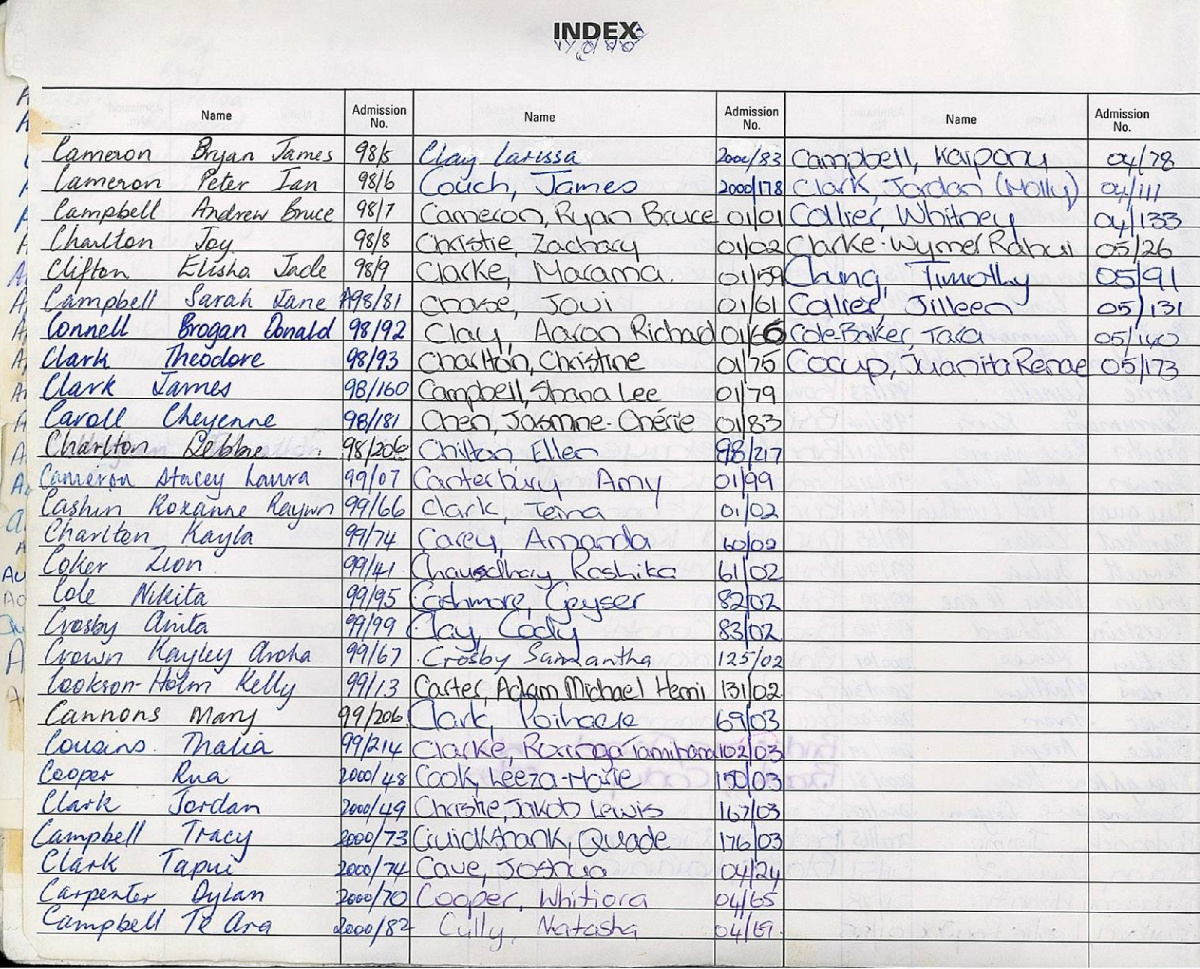 INDEX
Name Admission No. Name Admission No. Name Admission No.
Cameron Bryan James 98/5 Clay Larissa 2000/83 Campbell, Karpany 04/78
Cameron Peter Ian 98/6 Couch, James 2000/178 Clark, Jordan (Molly) 04/111
Campbell Andrew Bruce 98/7 Cameron, Ryan Bruce 01/01 Collier, Whitney 04/133
Charlton Joy 98/8 Christie, Zachary 01/02 Clarke-Wymer Rahui 05/26
Clifton Elisha Jade 98/9 Clarke, Marama. 01/59 Chung, Timothy 05/91
Campbell Sarah Jane 98/81 Chase, Joui 01/61 Collier, Jilleen 05/131
Connell Brogan Donald 98/92 Clay, Aaron Richard 01/66 Cole-Baker, Tara 05/140
Clark Theodore 98/93 Charlton, Christine 01/75 Cocup, Juanita Renae 05/173
Clark James 98/160 Campbell, Shana Lee 01/79
Caroll Cheyenne 98/181 Chen, Jasmine-Chérie 01/83
Charlton Debbie 98/206 Chilton, Ellen 98/217
Cameron Stacey Laura 99/07 Canterbury Amy 01/99
Cashin Roxanne 99/66 Clark, Teina 01/02
Charlton Kayla 99/74 Carey, Amanda 60/02
Coker Zion 99/41 Chausdhay Rashika 61/02
Cole Nikita 99/95 Cashmore, Geyser 82/02
Crosby Anita 99/99 Clay, Cody 83/02
Crown Kayley Aroha 99/67 Crosby Samantha 125/02
Cookson-Holm Kelly 99/13 Carter, Adam Michael Hemi 131/02
Cannons Mary 99/206 Clark, 69/03
Cousins Thalia 99/214 Clarke, 102/03
Cooper Rua 2000/48 Cook, Leeza-Marie 150/03
Clark Jordan 2000/49 Christie, Jakob Lewis 167/03
Campbell Tracy 2000/73 Cruickshank, Quade 176/03
Clark Tapui 2000/74 Cave, Joshua 04/24
Carpenter Dylan 2000/70 Cooper, Whitiora 04/65
Campbell Te Ara 2000/82 Cully, Natasha 04/69